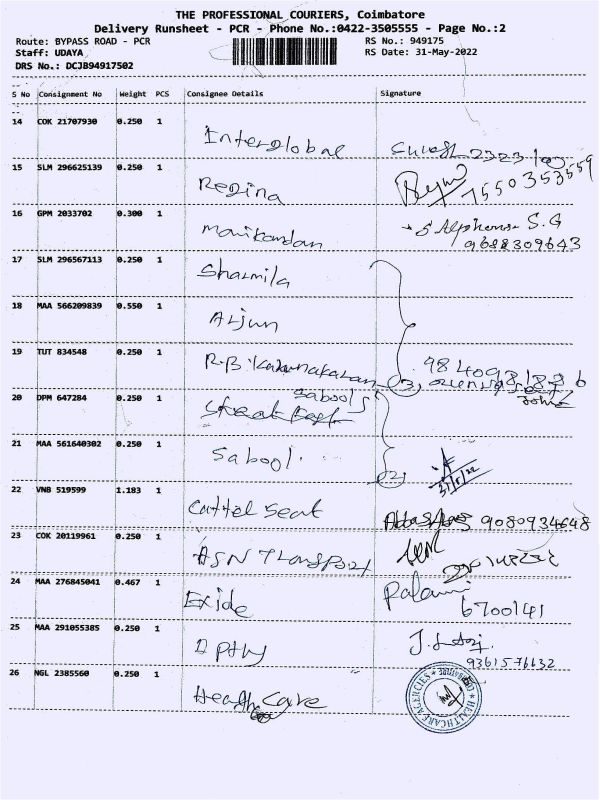 THE PROFESSIONAL COURIERS, Coimbatore
Delivery Runsheet - PCR - Phone No.:0422-3505555 - Page No.:2
Route: BYPASS ROAD - PCR
RS No.: 949175
Staff: UDAYA
RS Date: 31-May-2022
DRS No.: DCJB94917502
S No Consignment No Weight PCS Consignee Details Signature
14 COK 21707930 0.250 1
Interglobal
15 SLM 296625139 0.250 1
Regina 7550353559
16 GPM 2033702 0.300 1
Manikandan S Alphonse S.G
9688309643
17 SLM 296567113 0.250 1
Sharmila
18 MAA 566209839 0.550 1
Arjun
19 TUT 834548 0.250 1
R.B. Karunakaran
20 DPM 647284 0.250 1
Sabool
21 MAA 561640302 0.250 1
Sabool.
31/5/22
22 VNB 519599 1.183 1
Cattel Seat 9080934648
23 COK 20119961 0.250 1
ASN Transport
24 MAA 276845041 0.467 1
Exide Palani
6700141
25 MAA 291055385 0.250 1
9361576632
26 NGL 2385560 0.250 1
Health Care
HEALTHCARE AGENCIES